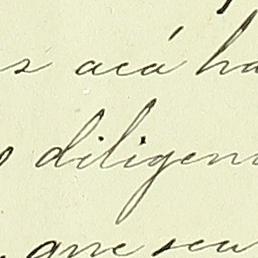 s acá ha
diligen
que seu